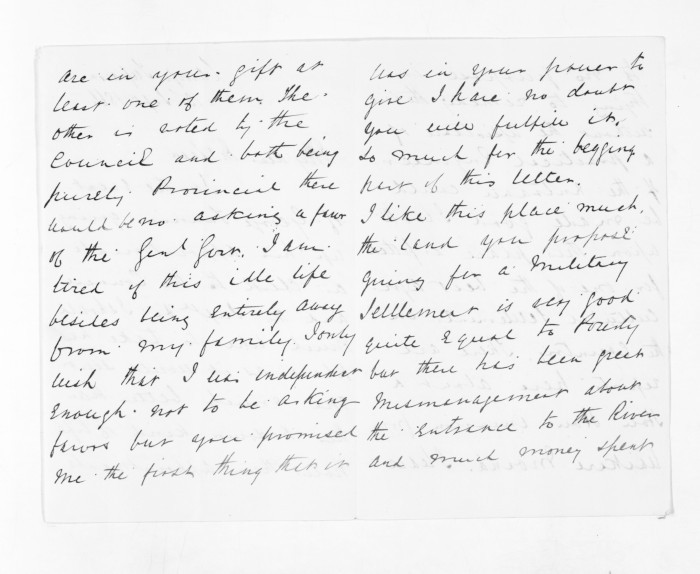 are in your gift at
least one of them. The
other is voted by the
Council and both being
purely Provincial there
would be no asking a favor
of the Genl Govr. I am
tired of this idle life
besides being entirely away
from my family. I only
wish that I was independent
enough not to be asking
favors but you promised
me the first thing that it
was in your power to
give I have no doubt
you will fulfile it.
So much for the begging
part of this letter.
I like this place much,
the land you propose
giving for a Military
Settlement is very good
quite equal to
but there has been great
mismanagement about
the entrance to the River
and much money spent